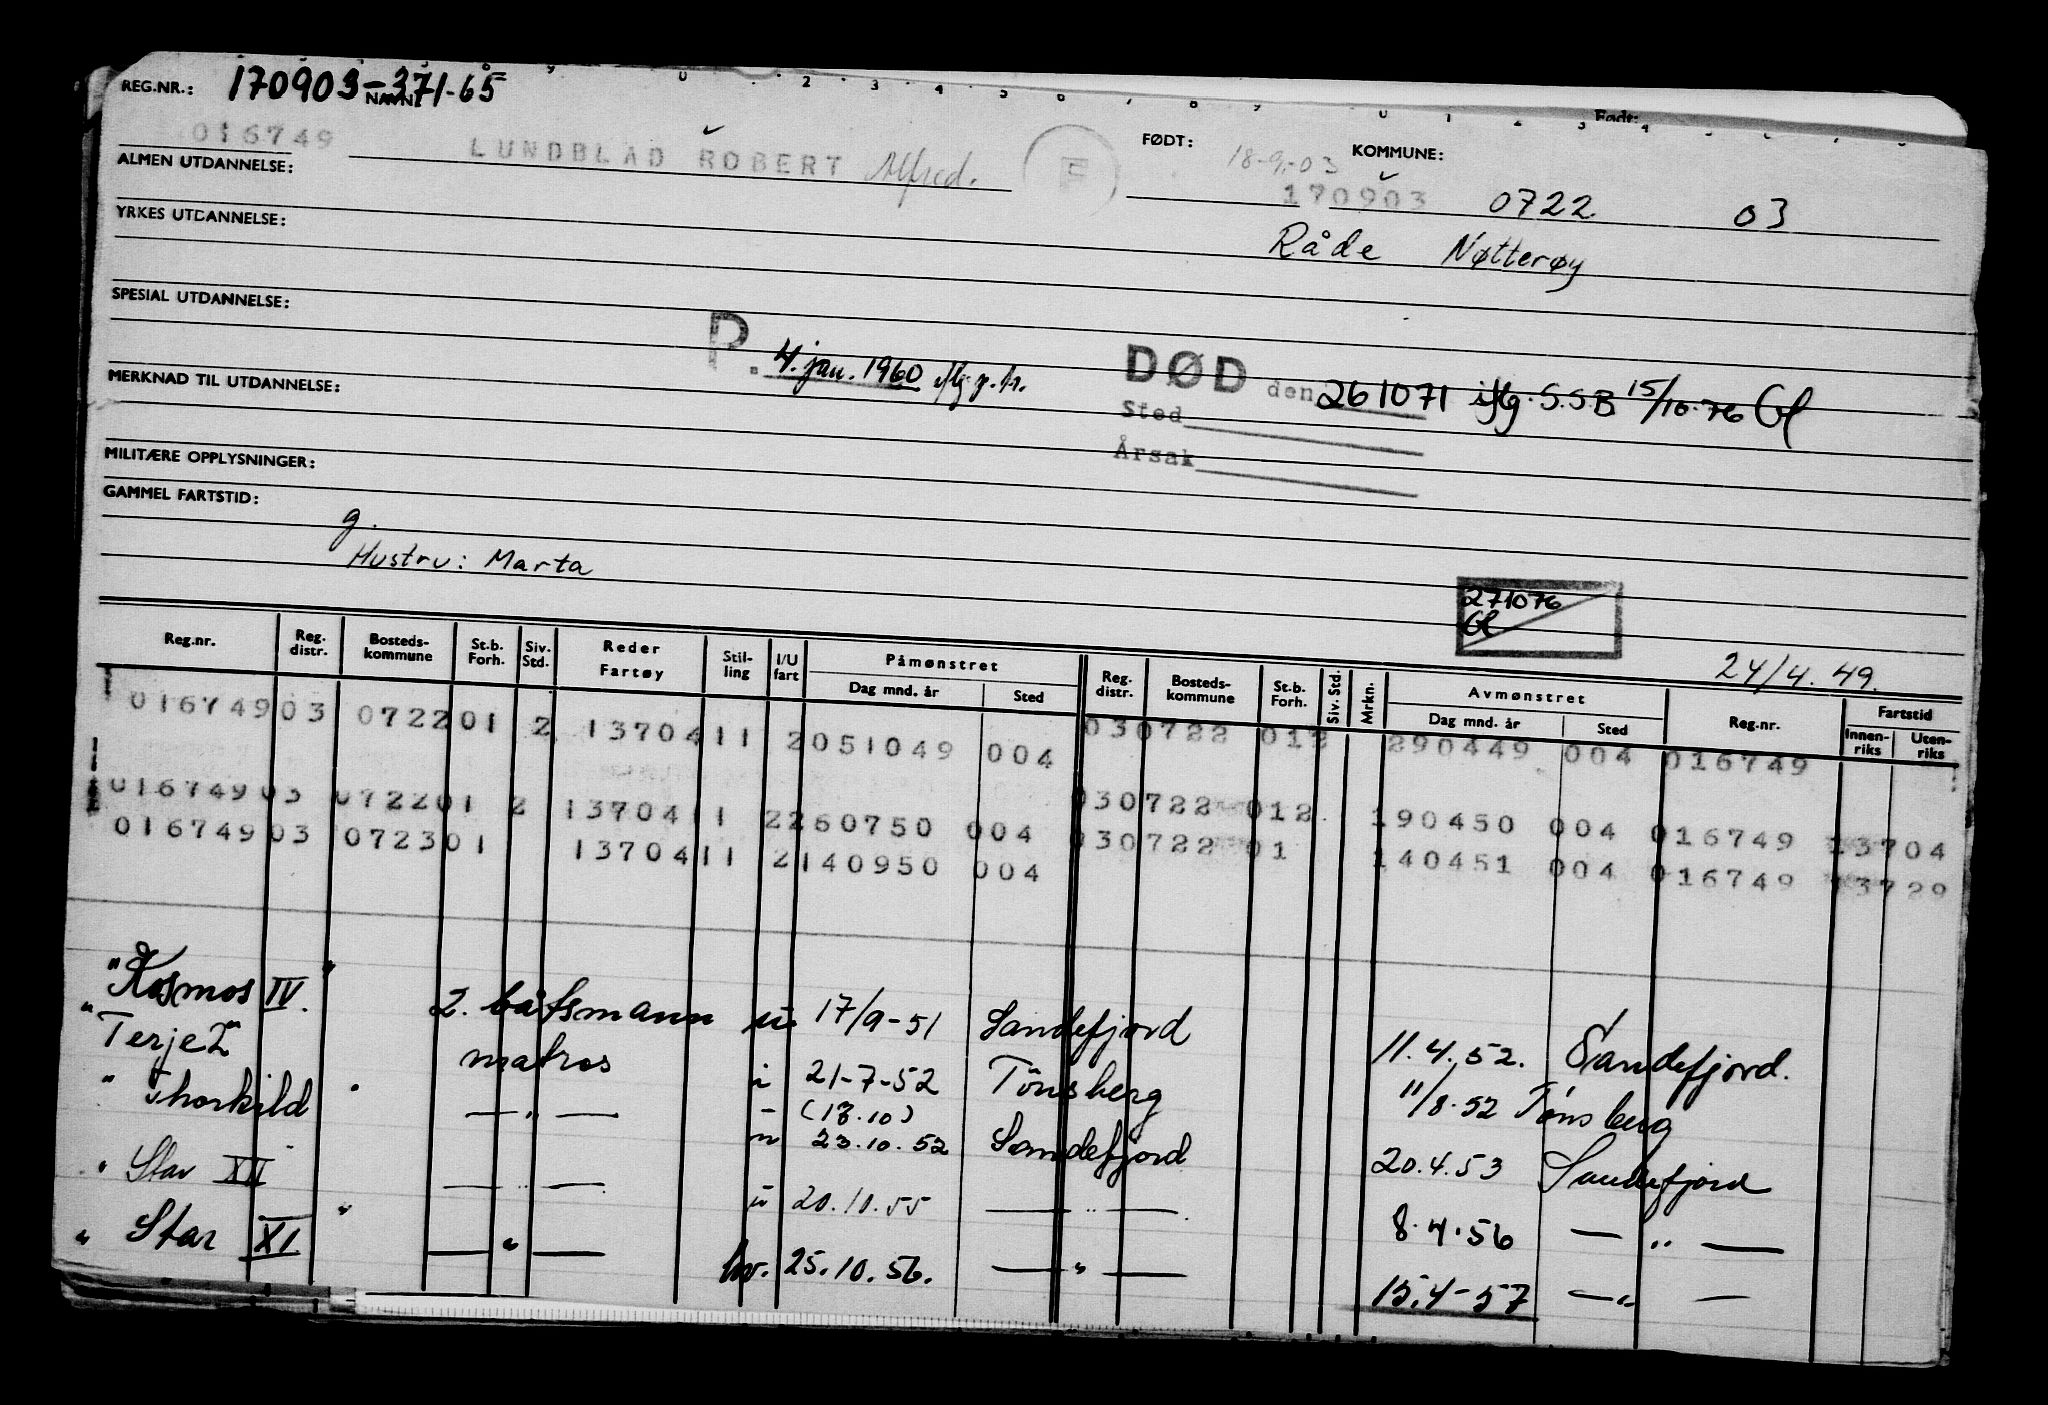 REG.NR.: 170903-371-65 NAVN
Født:
016749 LUNDBLAD ROBERT Alfred. F FØDT: 18-9-03 KOMMUNE:
170903 0722 03
ALMEN UTDANNELSE:
Råde Nøtterøy
YRKES UTDANNELSE:
SPESIAL UTDANNELSE:
P. 4. jan. 1960 iflg p.tr.
DØD den 261071 iflg. S.S.B 15/10-76 Gl
MERKNAD TIL UTDANNELSE:
Sted
Årsak
MILITÆRE OPPLYSNINGER:
GAMMEL FARTSTID:
g.
Hustru: Marta
271076
Gl
24/4.49.
Reg.nr. Reg. distr. Bosteds-kommune St.b. Forh. Siv. Std. Reder Fartøy Stil-ling I/U fart Påmønstret Dag mnd. år Sted Reg. distr. Bosteds-kommune St.b. Forh. Siv. Std. Mrkn. Avmønstret Dag mnd. år Sted Reg.nr. Fartstid Innen-riks Uten-riks
016749 03 0722 01 2 13704 11 2 051049 004 03 0722 01 2 290449 004 016749
016749 03 0722 01 2 13704 11 2 260750 004 03 0722 01 2 190450 004 016749 13704
016749 03 0723 01 13704 11 2 140950 004 03 0722 01 140451 004 016749 13729
"Kosmos IV" 2. båtsmann u 17/9-51 Sandefjord 11.4.52. Sandefjord.
"Terje 2" matros i 21-7-52 Tönsberg 11/8.52 Tönsberg
" Thorkild " — " — - (13.10)
u 23.10.52 Sandefjord 20.4.53 Sandefjord
" Star XII — " — u 20.10.55 — " — 8.4.56 — " —
" Star XI " — " — hv. 25.10.56. — " — 15.4-57 — " —